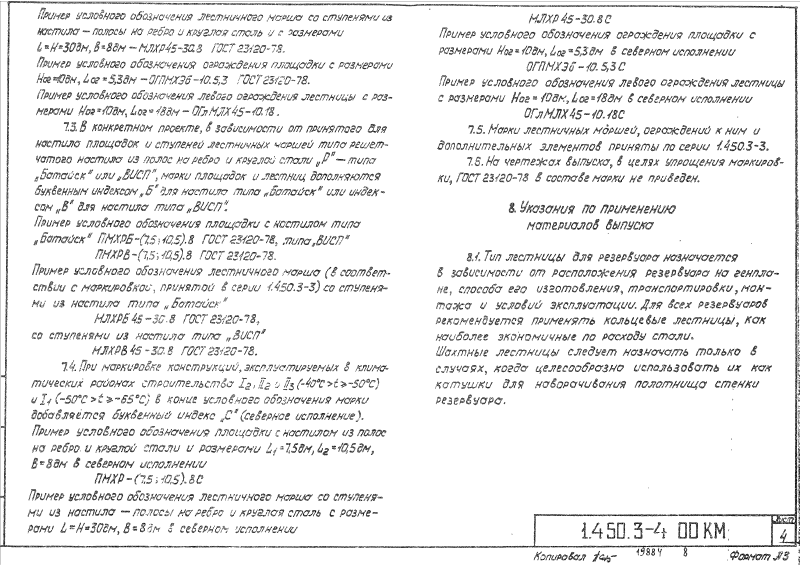 Пример условного обозначения лестничного марша со ступенями из
настила — полосы на ребро и круглая сталь и с размерами
L=H=30дм, B=8дм — МЛХР45-30.8 ГОСТ 23120-78.
Пример условного обозначения ограждения площадки с размерами
Hог=10дм, Lог=5,3дм — ОГПМХЭб-10.5,3 ГОСТ 23120-78.
Пример условного обозначения левого ограждения лестницы с раз-
мерами Hог=10дм, Lог=18дм — ОГлМЛХ45-10.18.
7.3. В конкретном проекте, в зависимости от принятого для
настила площадок и ступеней лестничных маршей типа решет-
чатого настила из полос на ребро и круглой стали „Р" — типа
„Батайск" или „ВИСП", марки площадок и лестниц дополняются
буквенным индексом „Б" для настила типа „Батайск" или индек-
сом „В" для настила типа „ВИСП".
Пример условного обозначения площадки с настилом типа
„Батайск" ПМХРБ-(7,5; 10,5).8 ГОСТ 23120-78, типа „ВИСП"
ПМХРВ-(7,5; 10,5).8 ГОСТ 23120-78.
Пример условного обозначения лестничного марша (в соответ-
ствии с маркировкой, принятой в серии 1.450.3-3) со ступеня-
ми из настила типа „Батайск"
МЛХРБ 45-30.8 ГОСТ 23120-78,
со ступенями из настила типа „ВИСП"
МЛХРВ 45-30.8 ГОСТ 23120-78.
7.4. При маркировке конструкций, эксплуатируемых в клима-
тических районах строительства I2, II2 и II3 (-40°C > t ≥ -50°C)
и I1 (-50°C > t ≥ -65°C) в конце условного обозначения марки
добавляется буквенный индекс „С" (северное исполнение).
Пример условного обозначения площадки с настилом из полос
на ребро и круглой стали и размерами L1=7,5дм, L2=10,5дм,
B=8дм в северном исполнении
ПМХР-(7,5; 10,5).8С
Пример условного обозначения лестничного марша со ступеня-
ми из настила — полосы на ребро и круглая сталь с разме-
рами L=H=30дм, B=8дм в северном исполнении
МЛХР 45-30.8С
Пример условного обозначения ограждения площадки с
размерами Hог=10дм, Lог=5,3дм в северном исполнении
ОГПМХЭб-10.5,3С
Пример условного обозначения левого ограждения лестницы
с размерами Hог=10дм, Lог=18дм в северном исполнении
ОГлМЛХ45-10.18С
7.5. Марки лестничных маршей, ограждений к ним и
дополнительных элементов приняты по серии 1.450.3-3.
7.6. На чертежах выпуска, в целях упрощения маркиров-
ки, ГОСТ 23120-78 в составе марки не приведен.
8. Указания по применению
материалов выпуска
8.1. Тип лестницы для резервуара назначается
в зависимости от расположения резервуара на генпла-
не, способа его изготовления, транспортировки, мон-
тажа и условий эксплуатации. Для всех резервуаров
рекомендуется применять кольцевые лестницы, как
наиболее экономичные по расходу стали.
Шахтные лестницы следует назначать только в
случаях, когда целесообразно использовать их как
катушки для наворачивания полотнища стенки
резервуара.
1.450.3-4 00КМ
Лист
4
Копировал 19884 8 Формат А3